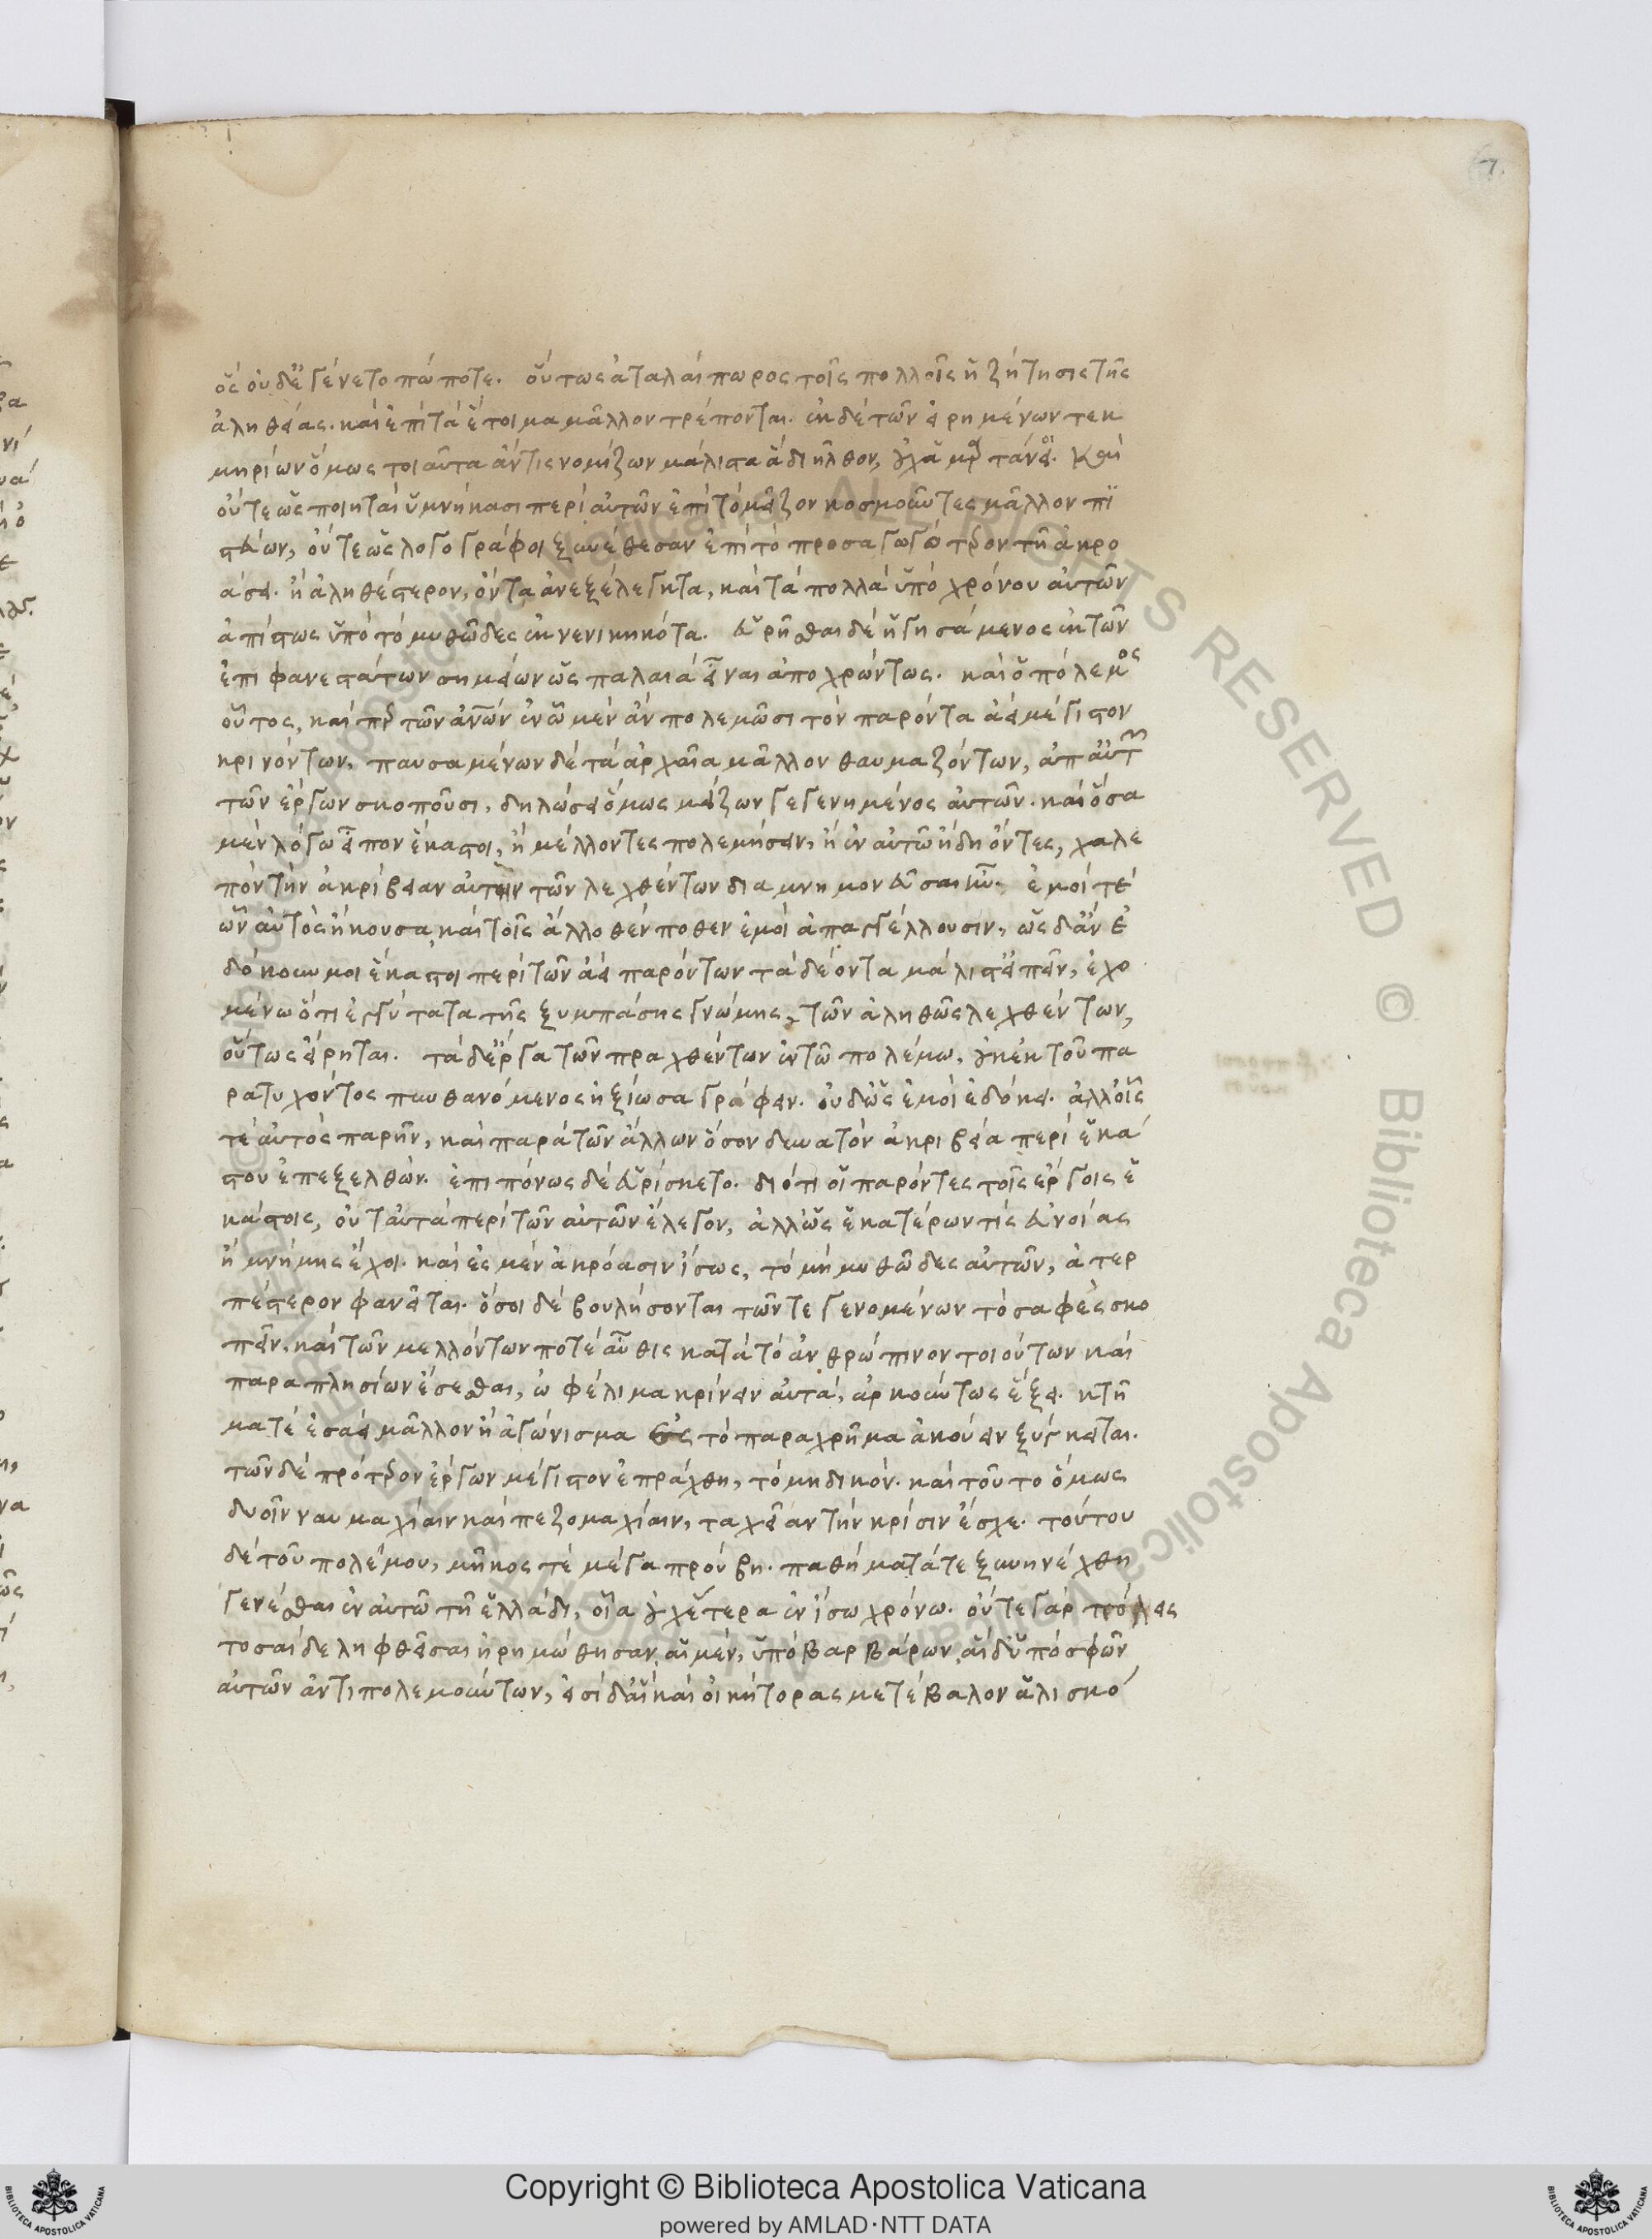 7.
ὃς οὐδ' ἐγένετο πώποτε. οὕτως ἀταλαίπωρος τοῖς πολλοῖς ἡ ζήτησις τῆς
ἀληθείας. καὶ ἐπὶ τὰ ἕτοιμα μᾶλλον τρέπονται. ἐκ δὲ τῶν εἰρημένων τεκ
μηρίων ὅμως τοιαῦτα ἄν τις νομίζων μάλιστα ἃ διῆλθον, οὐχ ἁμαρτάνοι. καὶ
οὔτε ὡς ποιηταὶ ὑμνήκασι περὶ αὐτῶν ἐπὶ τὸ μεῖζον κοσμοῦντες μᾶλλον πι
στεύων, οὔτε ὡς λογογράφοι ξυνέθεσαν ἐπὶ τὸ προσαγωγότερον τῇ ἀκρο
άσει. ἢ ἀληθέστερον, ὄντα ἀνεξέλεγκτα, καὶ τὰ πολλὰ ὑπὸ χρόνου αὐτῶν
ἀπίστως ὑπὸ τὸ μυθῶδες ἐκνενικηκότα. εὑρῆσθαι δὲ ἡγησάμενος ἐκ τῶν
ἐπιφανεστάτων σημείων ὡς παλαιὰ εἶναι ἀποχρώντως. καὶ ὁ πόλεμος
οὗτος, καίπερ τῶν ἀνων ἐν ᾧ μὲν ἂν πολεμῶσι τὸν παρόντα ἀεὶ μέγιστον
κρινόντων, παυσαμένων δὲ τὰ ἀρχαῖα μᾶλλον θαυμαζόντων, ἀπ' αὐτῶν
τῶν ἔργων σκοποῦσι, δηλώσει ὅμως μείζων γεγενημένος αὐτῶν. καὶ ὅσα
μὲν λόγῳ εἶπον ἕκαστοι, ἢ μέλλοντες πολεμήσειν, ἢ ἐν αὐτῷ ἤδη ὄντες, χαλε
πὸν τὴν ἀκρίβειαν αὐτὴν τῶν λεχθέντων διαμνημονεῦσαι ἦν. ἐμοί τε
ὧν αὐτὸς ἤκουσα, καὶ τοῖς ἄλλοθέν ποθεν ἐμοὶ ἀπαγγέλλουσιν, ὡς δ' ἂν ἐ
δόκουν μοι ἕκαστοι περὶ τῶν ἀεὶ παρόντων τὰ δέοντα μάλιστ' εἰπεῖν, ἐχο
μένῳ ὅτι ἐγγύτατα τῆς ξυμπάσης γνώμης, τῶν ἀληθῶς λεχθέντων,
οὕτως εἴρηται. τὰ δ' ἔργα τῶν πραχθέντων ἐν τῷ πολέμῳ, οὐκ ἐκ τοῦ πα
ρατυχόντος πυνθανόμενος ἠξίωσα γράφειν. οὐδ' ὡς ἐμοὶ ἐδόκει. ἀλλ' οἷς
τε αὐτὸς παρῆν, καὶ παρὰ τῶν ἄλλων ὅσον δυνατὸν ἀκριβείᾳ περὶ ἑκά
στου ἐπεξελθών. ἐπιπόνως δὲ εὑρίσκετο. διότι οἱ παρόντες τοῖς ἔργοις ἑ
κάστοις, οὐ ταὐτὰ περὶ τῶν αὐτῶν ἔλεγον, ἀλλ' ὡς ἑκατέρων τις εὐνοίας
ἢ μνήμης ἔχοι. καὶ ἐς μὲν ἀκρόασιν ἴσως, τὸ μὴ μυθῶδες αὐτῶν, ἀτερ
πέστερον φανεῖται. ὅσοι δὲ βουλήσονται τῶν τε γενομένων τὸ σαφὲς σκο
πεῖν. καὶ τῶν μελλόντων ποτὲ αὖθις κατὰ τὸ ἀνθρώπινον τοιούτων καὶ
παραπλησίων ἔσεσθαι, ὠφέλιμα κρίνειν αὐτά, ἀρκούντως ἕξει. κτῆ
μά τε ἐσαεὶ μᾶλλον ἢ ἀγώνισμα ἐς τὸ παραχρῆμα ἀκούειν ξύγκειται.
τῶν δὲ πρότερον ἔργων μέγιστον ἐπράχθη, τὸ μηδικόν. καὶ τοῦτο ὅμως
δυοῖν ναυμαχίαιν καὶ πεζομαχίαιν, ταχεῖαν τὴν κρίσιν ἔσχε. τούτου
δὲ τοῦ πολέμου, μῆκός τε μέγα προύβη. παθήματά τε ξυνηνέχθη
γενέσθαι ἐν αὐτῷ τῇ ἑλλάδι, οἷα οὐχ ἕτερα ἐν ἴσῳ χρόνῳ. οὔτε γὰρ πόλεις
τοσαίδε ληφθεῖσαι ἠρημώθησαν, αἱ μὲν, ὑπὸ βαρβάρων, αἱ δ' ὑπὸ σφῶν
αὐτῶν ἀντιπολεμούντων, εἰσὶ δ' αἳ καὶ οἰκήτορας μετέβαλον ἁλισκό
Copyright © Biblioteca Apostolica Vaticana
powered by AMLAD·NTT DATA